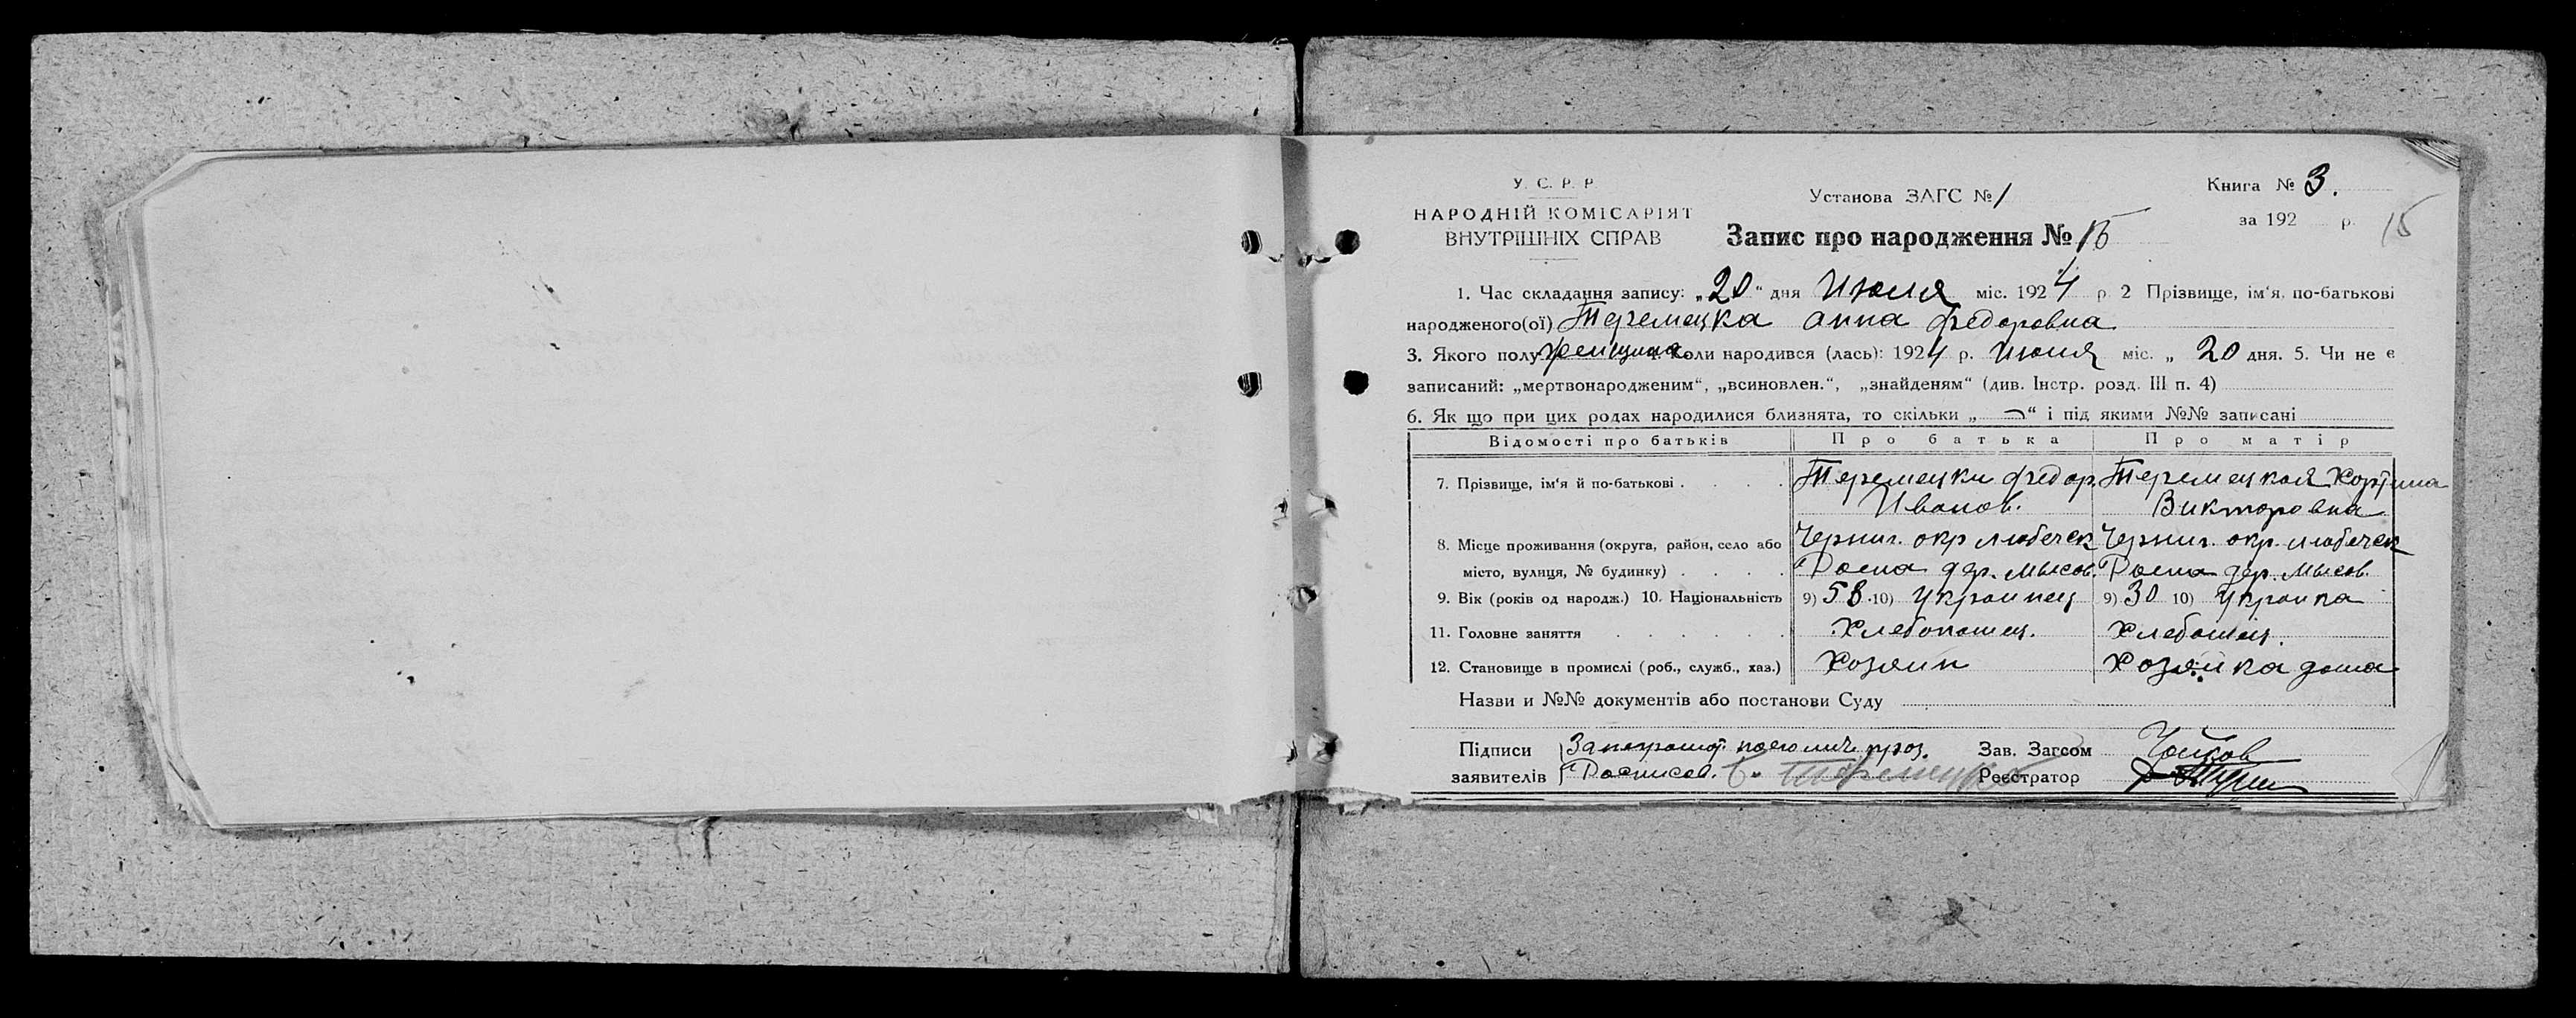 У. С. Р. Р.
НАРОДНІЙ КОМІСАРІЯТ
ВНУТРІШНІХ СПРАВ
Установа ЗАГС № 1
Запис про народження № 15
Книга № 3.
за 192 р.
15
1. Час складання запису: „20“ дня Июля міс. 1924 р 2 Прізвище, ім‘я, по-батькові
народженого(ої) Теремецка Анна Федоровна
3. Якого полу женщина 4. Коли народився (лась): 1924 р. Июля міс. „ 20 дня. 5. Чи не є
записаний: „мертвонародженим“, „всиновлен.“, „знайденям“ (див. Інстр. розд. III п. 4)
6. Як що при цих родах народилися близнята, то скільки „ — “ і під якими №№ записані
Відомості про батьків Про батька Про матір
7. Прізвище, ім‘я й по-батькові . . . . Теремецки Федор. Теремецкая
Иванов. Викторовна
8. Місце проживання (округа, район, село або Черниг. окр Любечек Черниг. окр. Любечек
місто, вулиця, № будинку) . . . . дер. Мысов. дер. Мысов.
9. Вік (років од народж.) 10. Національність 9) 58 10) Украинец 9) 30 10) Украинка
11. Головне заняття . . . . . . Хлебопашец. Хлебопашец.
12. Становище в промислі (роб., служб., хаз.) Хозяин Хозяйка дома
Назви и №№ документів або постанови Суду
Підписи Зав. Загсом
заявителів Расписов. Реєстратор